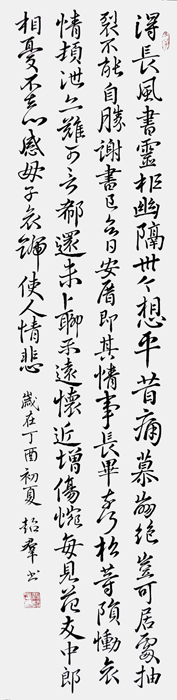 得長風書靈柩幽隔卅々想平昔痛慕崩絕豈可居處抽
裂不能自勝謝書已令日安厝即其情事長畢奈何松等隕慟哀
情頓泄亦難可言郗還未卜聊示遠懷近增傷惋每見范中郎
相憂不去心感母子哀號使人情悲 歲在丁酉初夏 超群书